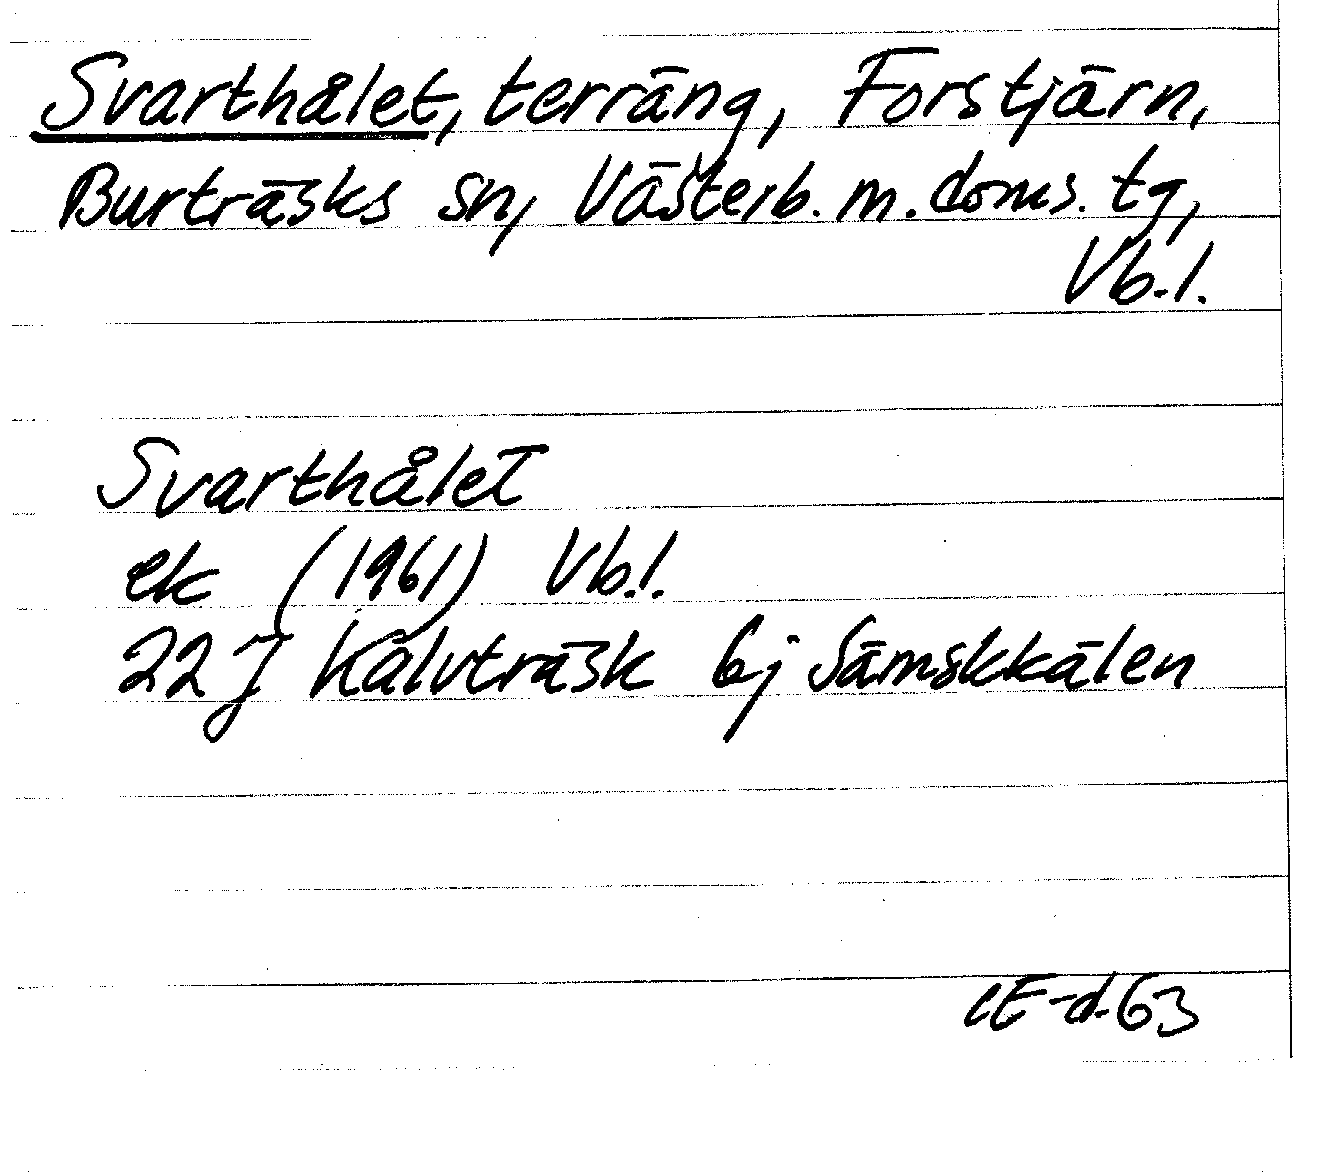 Svarthålet, terräng, Forstjärn,
Burträsks sn, Västerb. m. doms. tg,
Vb. l.
Svarthålet
ek (1961) Vb.l.
22 J Kalvträsk 6j Sämskkälen
CE-d-63